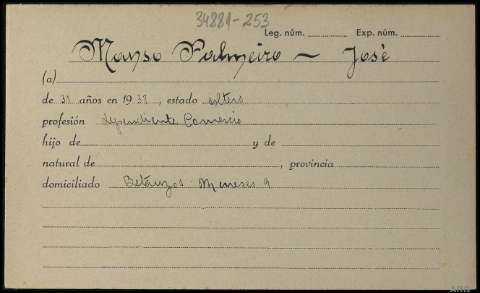 34881-253
Leg. núm. Exp. núm.
Manso Palmeiro — José
(a)
de 31 años en 1937, estado soltero
profesión dependiente Comercio
hijo de y de
natural de , provincia
domiciliado Betanzos - Meneses 9